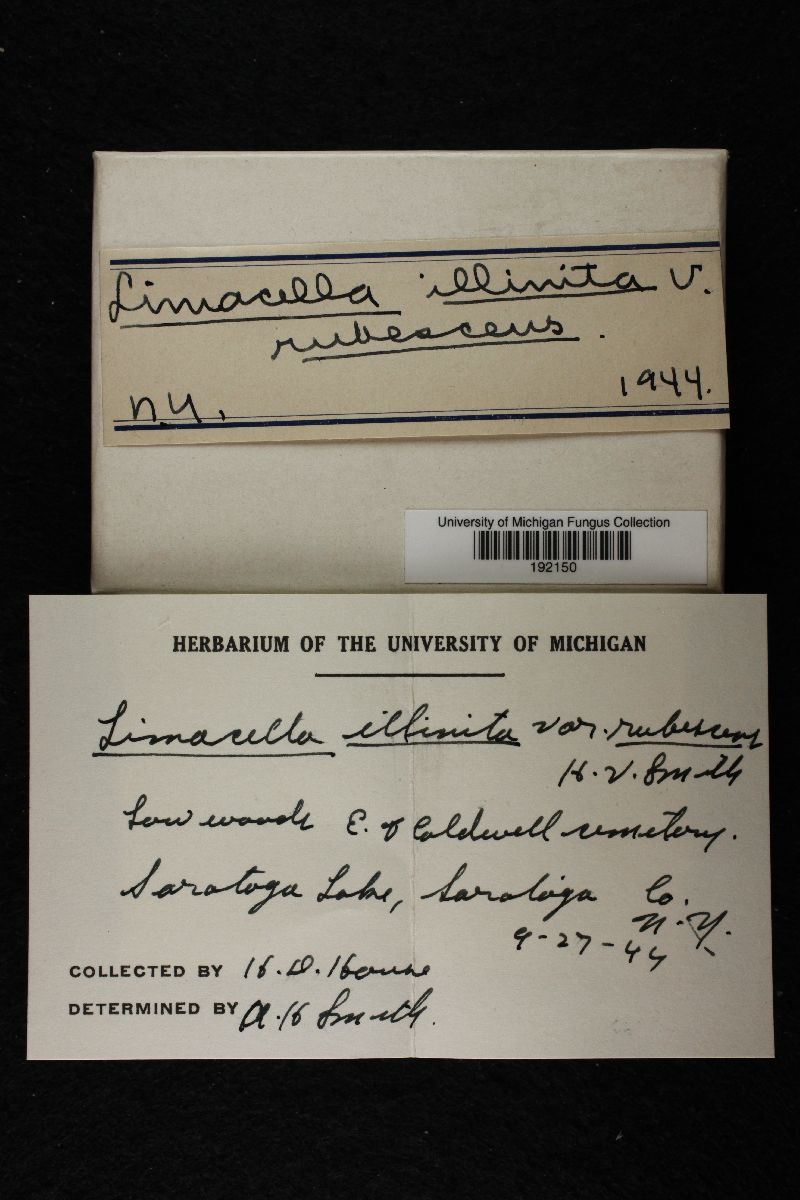 Limacella illinita V.
rubescens.
N.Y. 1944.
University of Michigan Fungus Collection
192150
HERBARIUM OF THE UNIVERSITY OF MICHIGAN
Limacella illinita var. rubescens
H. V. Smith
Low woods E. of Coldwell cemetery.
Saratoga Lake, Saratoga Co.
N.Y.
9-27-44
COLLECTED BY H. D. House
DETERMINED BY A. H Smith.